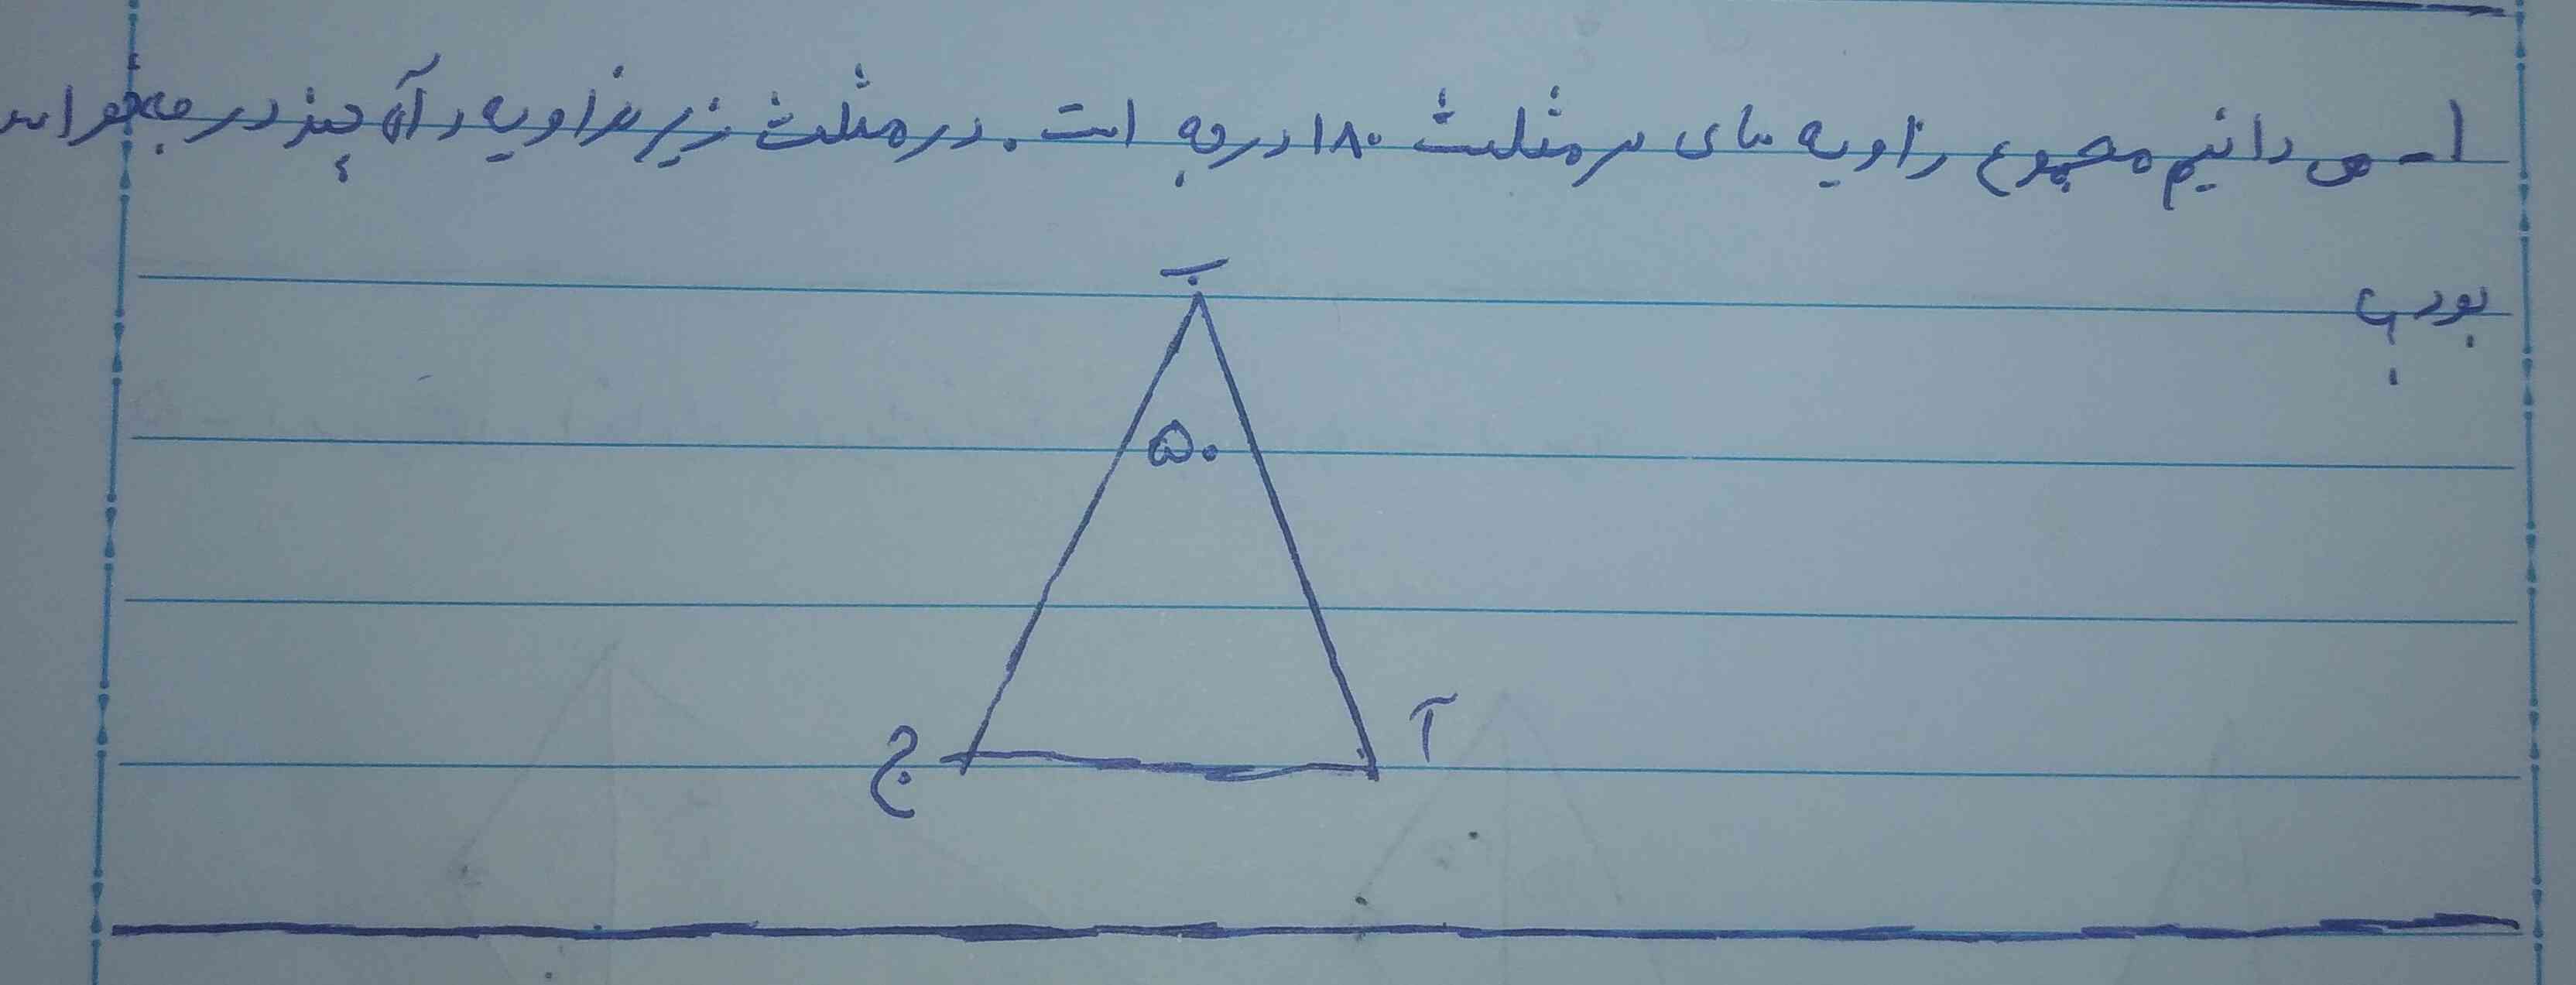 ۱- می دانیم مجموع زاویه های هر مثلث ۱۸۰ درجه است. در مثلث زیر هر زاویه رآی چند درجه خواهد
بود؟
ب
۵۰
آ
ج